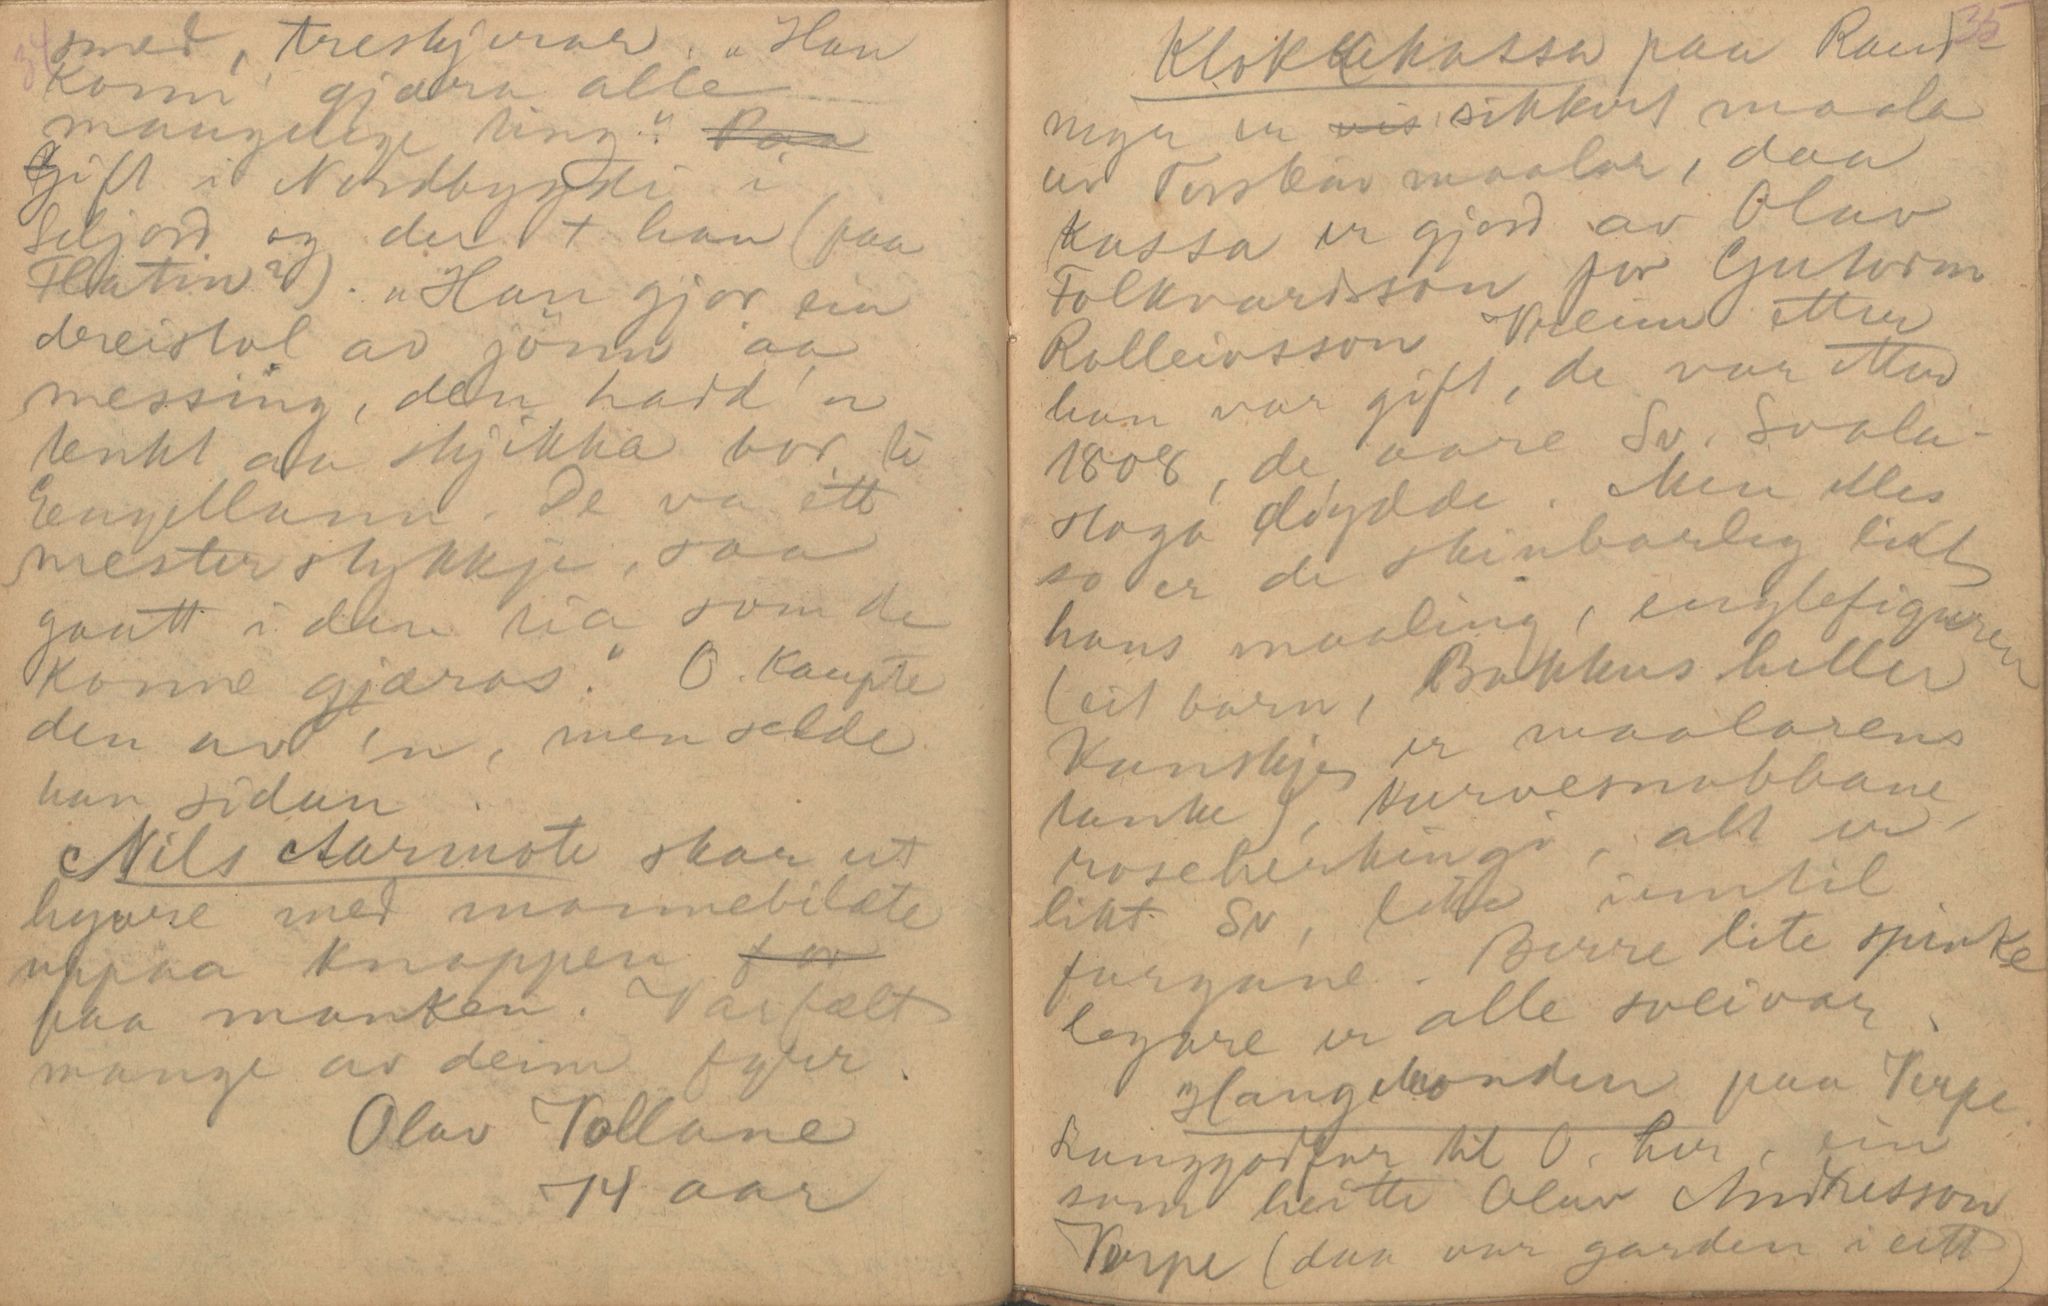 34
smed, treskjerar. "Han
konn' gjæra alle
maugelege ting". ~~Paa~~
Gift i Nordbygdi i
Seljord og der + han (paa
Flatin?). "Han gjor ein
dreistol av jönn aa
messing, den hadd 'n
tenkt aa skjikka bor ti
Engellann. De va ett
mesterstykkje, saa
gautt i den tia som de
konne gjæras." O. kaupte
den av 'n, men selde
han sidan.
Nils Aarmote skar ut
hyvre med mannebilæte
uppaa knappen ~~for~~
paa manken. Var fælt
mange av deim fyrr.
Olav Vollane
74 aar
35
Klokkekassa paa Raud-
myr er ~~vis~~ sikkert maala
av Torstein maalar, daa
kassa er gjord av Olav
Folkvardsson for Gutorm
Rolleivsson Kleim etter
han var gift, de var etter
1808, de aare Sv. Svala-
stoga döydde. Men elles
so er de skinbarleg likt
hans maaling, englefiguren
(eit barn, Bakkus heller
kanskje er maalarens
tanke), kurvesnabbane,
roseherkingi, alt er
likt Sv, like inntil
fargane. Berre lite spinke
legare er alle sveivar.
Haugebonden paa Verpe
Langgodfar til O. her, ein
som heitte Olav Andresson
Verpe (daa var garden i eitt)